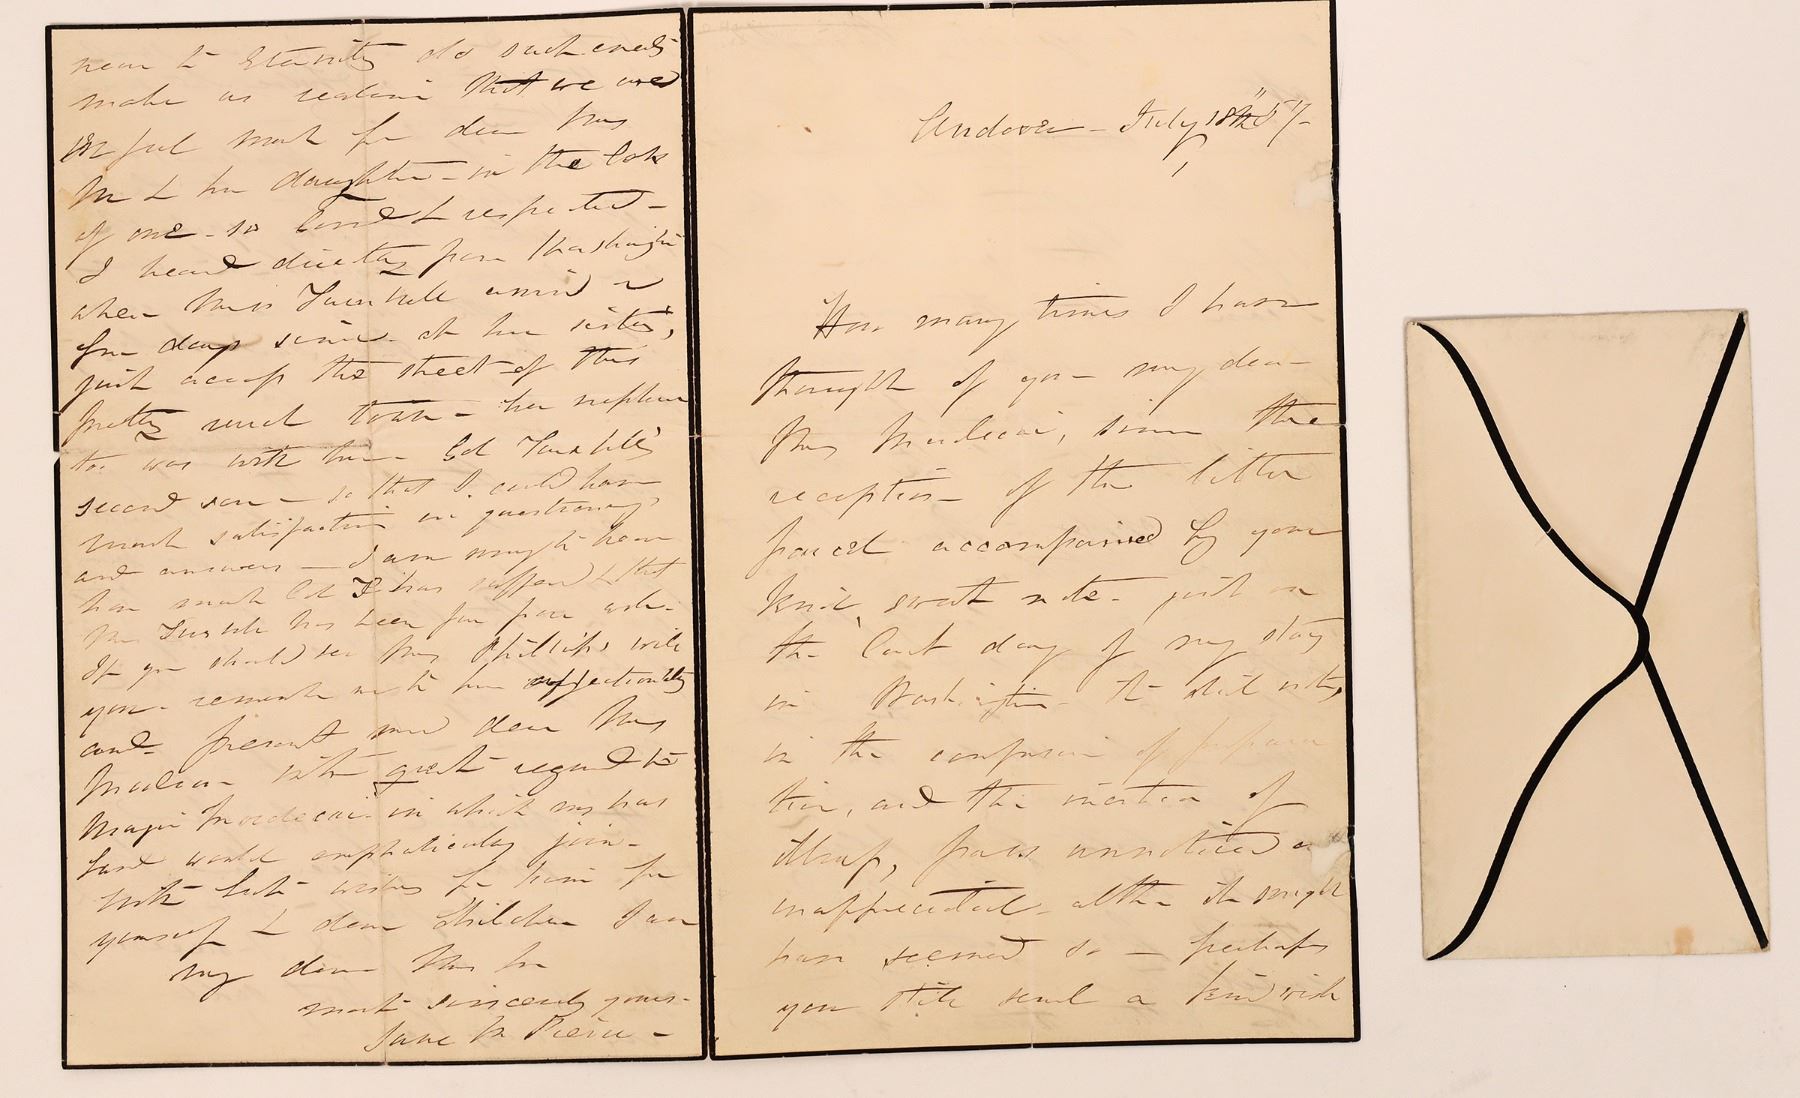 Andover - July 18th 57-
How many times I have
thought of you - my dear
Mrs Mordecai, since the
reception of the little
parcel accompanied by your
kind, sweet note - just on
the last day of my stay
in Washington - It did not,
in the confusion of prepara
tion, and the inertia of
illness, pass unnoticed or
unappreciated - altho it might
have seemed so - perhaps
you still send a kind wish
near to Eternity do such events
make us realize that we are
We feel much for dear Mrs
M & her daughter - in the loss
of one - so loved & respected -
I heard directly from Washington
when Miss Turnbull arrived a
few days since - at her sister's,
just across the street of this
pretty rural town - her nephew
too was with her - Col Turnbull's
second son - so that I could have
much satisfaction in questioning
and answers - I am sorry to hear
how much Col T has suffered & that
Mrs Turnbull has been far from well.
If you should see Mrs Phillips will
you remember me to her affectionately
and present me dear Mrs
Mordecai with great regard to
Major Mordecai in which my hus
band would emphatically join -
With best wishes for him for
yourself & dear Children I am
my dear Mrs M
most sincerely yours -
Jane M Pierce -